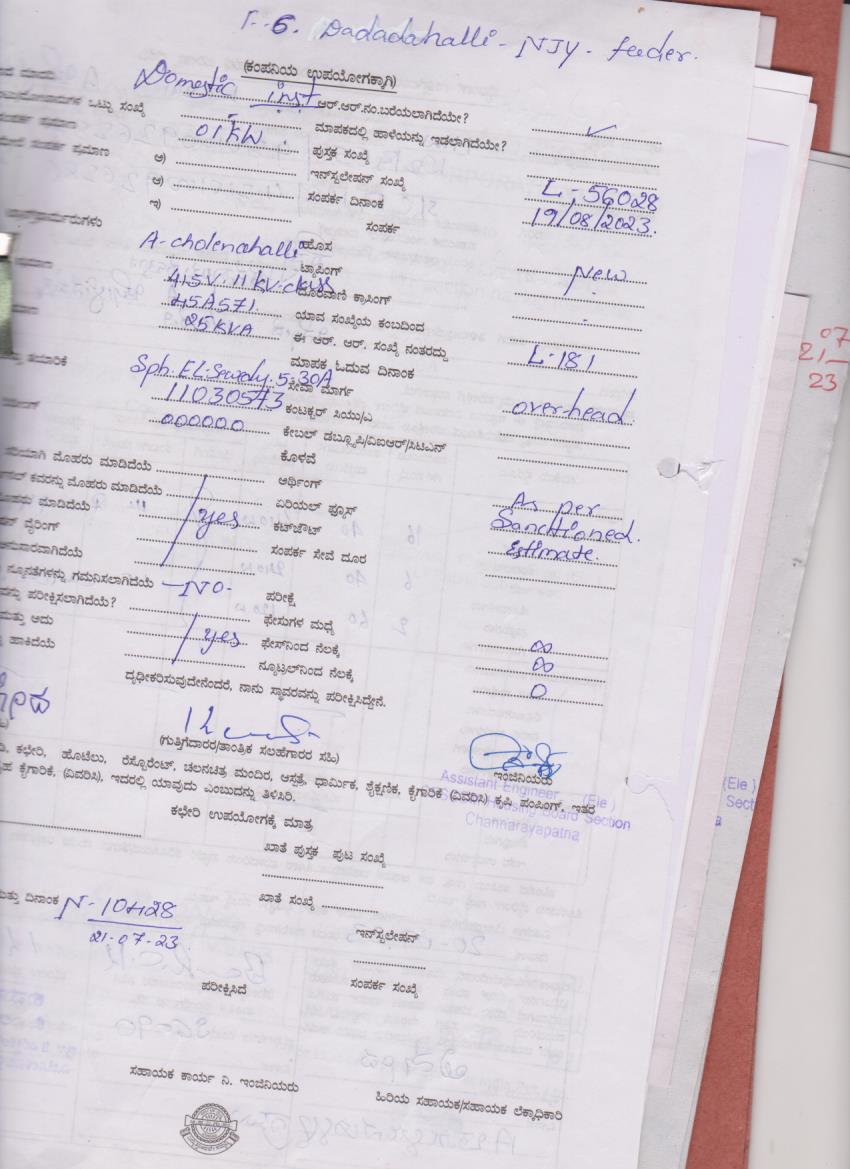 F-6. Dadadahalli - NJY - feeder.
(ಕಂಪನಿಯ ಉಪಯೋಗಕ್ಕಾಗಿ)
Domestic inst ಆರ್.ಆರ್.ನಂ.ಬರೆಯಲಾಗಿದೆಯೇ? ✓
ಒಟ್ಟು ಸಂಖ್ಯೆ ಮಾಪಕದಲ್ಲಿ ಹಾಳೆಯನ್ನು ಇಡಲಾಗಿದೆಯೇ?
ಸಂಪರ್ಕ ಪ್ರಮಾಣ 01KW. ಪುಸ್ತಕ ಸಂಖ್ಯೆ
ಸಂಪರ್ಕ ಪ್ರಮಾಣ ಅ) ಇನ್‌ಸ್ಟಲೇಷನ್ ಸಂಖ್ಯೆ L-56028
ಆ) ಸಂಪರ್ಕ ದಿನಾಂಕ 19/08/2023.
ಇ) ಸಂಪರ್ಕ
A-cholenahalli ಹೊಸ New
ಟ್ಯಾಪಿಂಗ್
415V. 11KV. ckss ದೂರವಾಣಿ ಕ್ರಾಸಿಂಗ್
45A571. ಯಾವ ಸಂಖ್ಯೆಯ ಕಂಬದಿಂದ
25KVA ಈ ಆರ್. ಆರ್. ಸಂಖ್ಯೆ ನಂತರದ್ದು L-181
ಮಾಪಕ ಓದುವ ದಿನಾಂಕ
Sph. EL. 5-30A ಸೇವಾ ಮಾರ್ಗ overhead
11030573 ಕಂಟಕ್ಟರ್ ಸಿಯು/ಎ
000000 ಕೇಬಲ್ ಡಬ್ಲ್ಯೂಪಿ/ವಿಐಆರ್/ಸಿಟಿಎನ್
ಕೊಳವೆ
ಮೊಹರು ಮಾಡಿದೆಯೆ ಅರ್ಥಿಂಗ್ As per
ಕವರನ್ನು ಮೊಹರು ಮಾಡಿದೆಯೆ ಏರಿಯಲ್ ಫ್ಯೂಸ್ Sanctioned.
ಮಾಡಿದೆಯೆ yes ಕಟ್‌ಔಟ್ Estimate.
ವೈರಿಂಗ್ ಸಂಪರ್ಕ ಸೇವೆ ದೂರ
ನ್ಯೂನತೆಗಳನ್ನು ಗಮನಿಸಲಾಗಿದೆಯೆ - NO - ಪರೀಕ್ಷೆ
ಪರೀಕ್ಷಿಸಲಾಗಿದೆಯೆ? ಫೇಸುಗಳ ಮಧ್ಯೆ ∞
ಮತ್ತು ಅದು yes ಫೇಸ್‌ನಿಂದ ನೆಲಕ್ಕೆ ∞
ಹಾಕಿದೆಯೆ ನ್ಯೂಟ್ರಲ್‌ನಿಂದ ನೆಲಕ್ಕೆ 0
ದೃಢೀಕರಿಸುವುದೇನೆಂದರೆ, ನಾನು ಸ್ಥಾವರವನ್ನು ಪರೀಕ್ಷಿಸಿದ್ದೇನೆ.
(ಗುತ್ತಿಗೆದಾರರ/ತಾಂತ್ರಿಕ ಸಲಹೆಗಾರರ ಸಹಿ)
ಇಂಜಿನಿಯರು
Assistant Engineer (Ele)
Board Section
Channarayapatna
ಕಛೇರಿ, ಹೊಟೆಲು, ರೆಸ್ಟೋರೆಂಟ್, ಚಲನಚಿತ್ರ ಮಂದಿರ, ಆಸ್ಪತ್ರೆ, ಧಾರ್ಮಿಕ, ಶೈಕ್ಷಣಿಕ, ಕೈಗಾರಿಕೆ (ವಿವರಿಸಿ) ಕೃಷಿ, ಪಂಪಿಂಗ್, ಇತರ
ಕೈಗಾರಿಕೆ, (ವಿವರಿಸಿ), ಇದರಲ್ಲಿ ಯಾವುದು ಎಂಬುದನ್ನು ತಿಳಿಸಿರಿ.
ಕಛೇರಿ ಉಪಯೋಗಕ್ಕೆ ಮಾತ್ರ
ಖಾತೆ ಪುಸ್ತಕ ಪುಟ ಸಂಖ್ಯೆ
ಮತ್ತು ದಿನಾಂಕ N-10428 ಖಾತೆ ಸಂಖ್ಯೆ
21-07-23 ಇನ್‌ಸ್ಟಲೇಷನ್
ಪರೀಕ್ಷಿಸಿದೆ ಸಂಪರ್ಕ ಸಂಖ್ಯೆ
ಸಹಾಯಕ ಕಾರ್ಯ ನಿ. ಇಂಜಿನಿಯರು ಹಿರಿಯ ಸಹಾಯಕ/ಸಹಾಯಕ ಲೆಕ್ಕಾಧಿಕಾರಿ
07
21
23
(Ele)
Sect